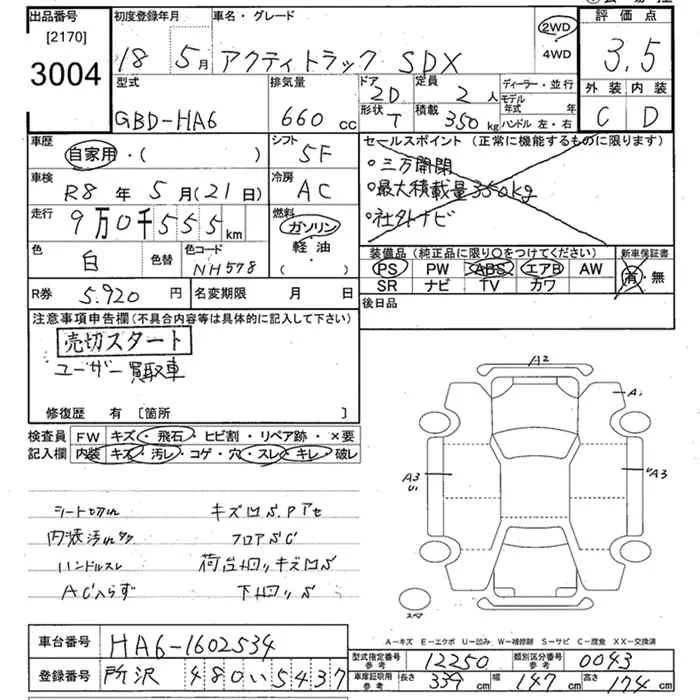 出品番号
[2170]
3004
初度登録年月
18 5月
車名・グレード
アクティトラック SDX
2WD
4WD
評価点
3.5
外装 内装
C D
型式
GBD-HA6
排気量
660 cc
ドア
2D
定員
2人
形状
T
積載
350kg
ディーラー・並行
モデル年式 年
ハンドル 左・右
車歴
自家用・( )
シフト
5F
セールスポイント (正常に機能するものに限ります)
○三方開閉
○最大積載量350kg
○社外ナビ
車検
R8年 5月(21日)
冷房
AC
走行
9万0千555km
燃料
ガソリン・
軽油
( )
色
白
色替
色コード
NH578
装備品 (純正品に限り○をつけてください)
PS PW ABS エアB AW
SR ナビ TV カワ
新車保証書
有・無
R券 5.920円
名変期限 月 日
後日品
注意事項申告欄(不具合内容等は具体的に記入して下さい)
売切スタート
ユーザー買取車
修復歴 有 [箇所 ]
検査員
記入欄
FW キズ・飛石・ヒビ割・リペア跡・×要
内装 キズ・汚レ・コゲ・穴・スレ・キレ・破レ
シート切れ キズ凹S.Pアセ
内張汚れ フロアSC
ハンドルスレ 荷台凹キズ凹S
AC入らず 下回りS
A2
A1
A3
U1
A3
スペア
A-キズ E-エクボ U-凹み W-補修跡 S-サビ C-腐食 XX-交換済
車台番号 HA6-1602534
登録番号 所沢 480い5437
型式指定番号
参考
12250
類別区分番号
参考
0043
車庫証明用
参考
長さ 339cm 幅 147cm 高さ 174cm